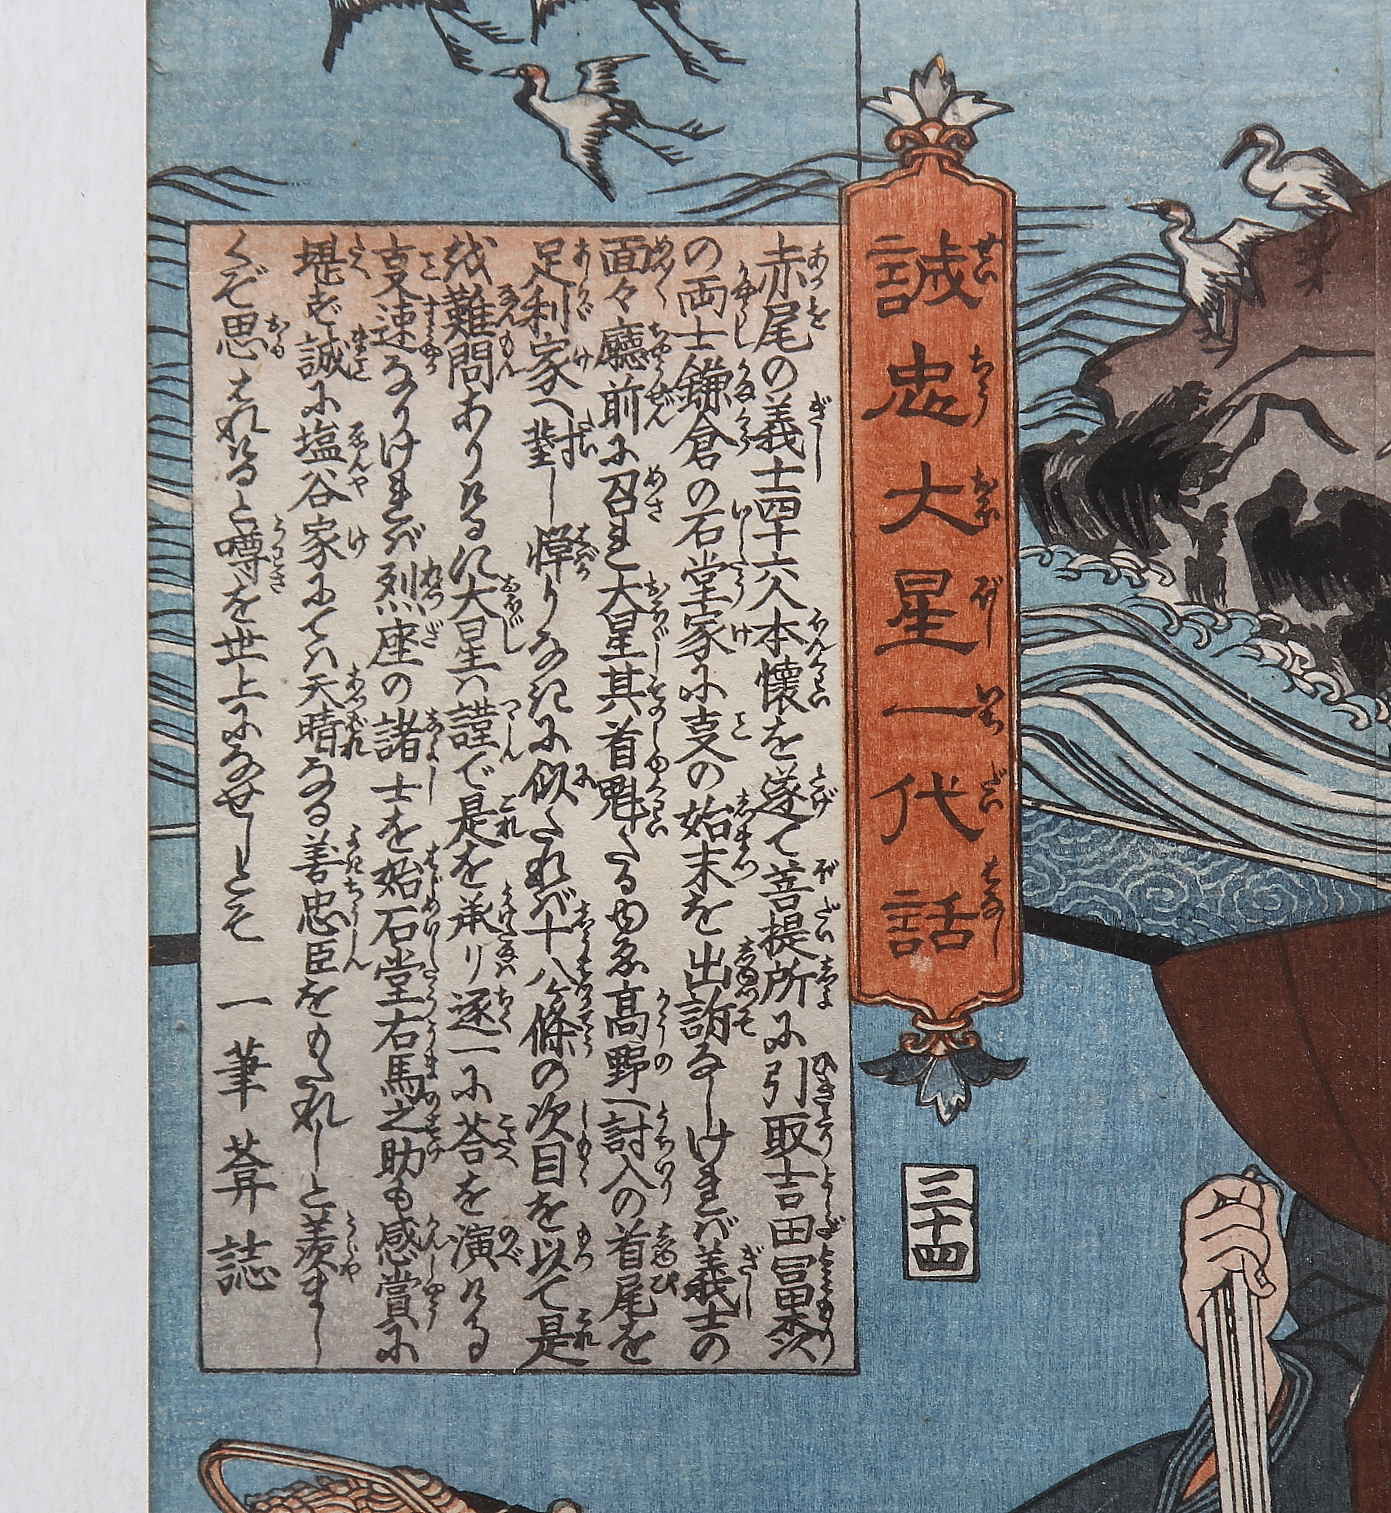 誠忠大星一代話
三十四
赤尾の義士四十六人本懐を遂て菩提所に引取吉田冨森
の両士鎌倉の石堂家に㕝の始末を出訴なしければ義士の
面々廳前に召れ大星其首魁たるゆゑ髙野へ討入の首尾を
足利家へ對し憚りなきに似たれバ十八ヶ條の次目を以て是
を難問ありけるに大星ハ謹で是を承り逐一に荅を演ける
㕝速なりければ烈座の諸士を始石堂右馬之助も感賞に
堪ず誠に塩谷家にてハ天晴なる善忠臣をもたれしと羨まし
くぞ思はれけると噂を世上になせしとそ
一筆葊誌